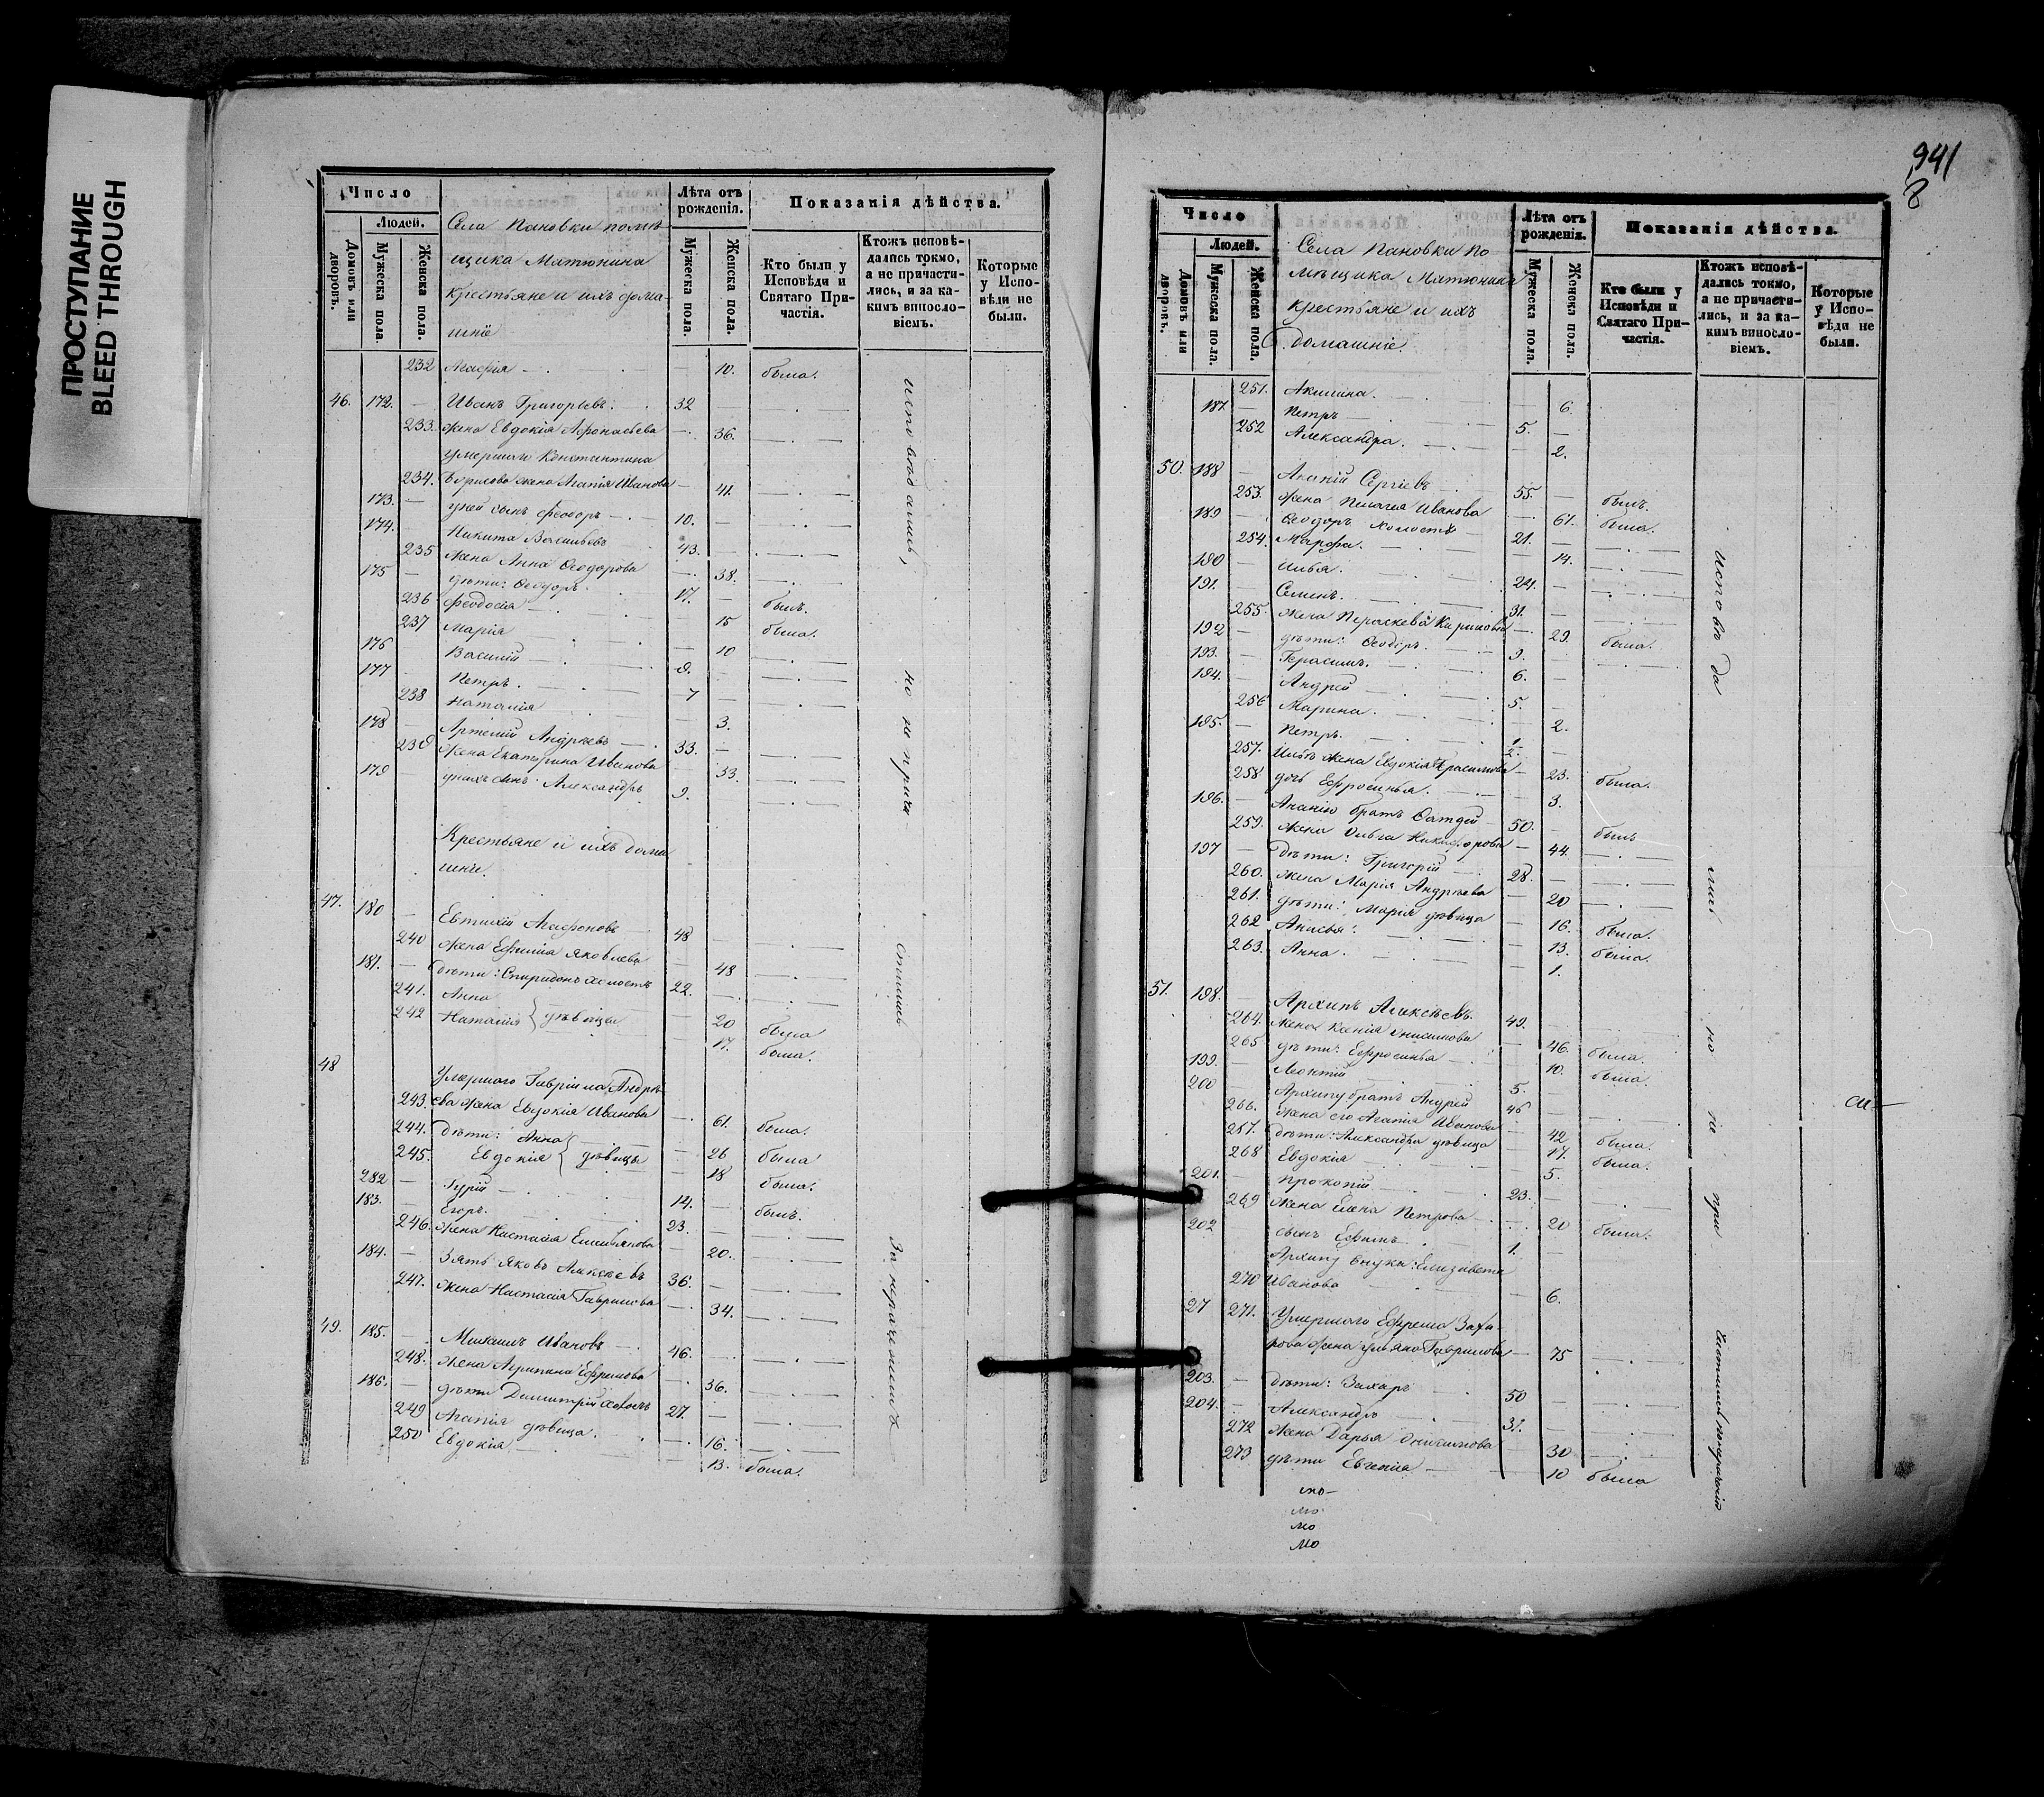 ПРОСТУПАНИЕ
BLEED THROUGH
Число
Людей.
Домовъ или дворовъ.
Мужеска пола.
Женска пола.
Села Пановки помѣ
щика Матюнина
крестьяне и ихъ дома
шніе
Лѣта отъ рожденія.
Мужеска пола.
Женска пола.
Показанія дѣйства.
Кто были у Исповѣди и Святаго Причастія.
Ктожъ исповѣдались токмо, а не причастились, и за какимъ винословіемъ.
Которые у Исповѣди не были.
232 Агафія — 10. была.
46. 172. Иванъ Григорьевъ. 32
233. жена Евдокія Афонасьева 36.
умершаго Константина
234. Борисова жена Агапія Иванова 41.
173. у ней сынъ Феодоръ 10.
174. Никита Васильевъ 43.
235 жена Анна Ѳеодорова 38.
175 дѣти: Ѳеодоръ 17. былъ.
236 Феодосія 15 была.
237 Марія 10
176 Василій 9.
177 Петръ. 7
238 Наталія 3.
178 Артемій Андреевъ 33.
239 жена Екатерина Иванова 33.
179 у нихъ сынъ Александръ 9.
Крестьяне и ихъ дома
шніе.
47. 180 Евтихій Агафоновъ 48
240 жена Ефимія Яковлева 48
181. дѣти: Спиридонъ холостъ 22.
241. Анна 20 была
242 Наталія } дѣвицы 17. была.
48 Умершаго Гавріила Андре
243. ева жена Евдокія Иванова 61. была.
244. дѣти: Анна 26 была
245. Евдокія } дѣвицы 18 была.
282 Гурій 14. былъ.
183. Егоръ. 23.
246. жена Настасія Емельянова 20.
184. Зять Яковъ Алексѣевъ 36.
247. жена Настасія Гаврилова 34.
49. 185. Михаилъ Ивановъ 46.
248. жена Агрипина Ефремова 36.
186. дѣти Димитрій холостъ 27.
249 Агапія дѣвица. 16.
250 Евдокія 13. была.
исповѣдались, но не прича стились за нераченіемъ
941
8
Число
Людей.
Домовъ или дворовъ.
Мужеска пола.
Женска пола.
Села Пановки по
мѣщика Матюнина
крестьяне и ихъ
домашніе.
Лѣта отъ рожденія.
Мужеска пола.
Женска пола.
Показанія дѣйства.
Кто были у Исповѣди и Святаго Причастія.
Ктожъ исповѣдались токмо, а не причастились, и за какимъ винословіемъ.
Которые у Исповѣди не были.
251. Акилина. 6.
187. Петръ 5.
252 Александра. 2.
50. 188 Ананій Сергѣевъ 55. былъ.
253. жена Пелагія Иванова 61. была.
189 Ѳеодоръ холостъ 21.
254. Марфа. 14.
190 Илья. 24.
191. Семенъ. 31.
255. жена Параскева Кирилова 29. была.
192 дѣти: Ѳеодоръ. 9.
193. Герасимъ. 6.
194. Андрей 5.
256 Марина. 2.
195. Петръ.
257. Ильѣ жена Евдокія Герасимова 23. была.
258 дочь Ефросинья. 3.
196. Ананію братъ Ѳатдей 50. былъ
259. жена Ольга Никифорова 44.
197 дѣти: Григорій 28.
260. жена Марія Андреева 20
261. дѣти: Марія дѣвица 16. была.
262 Анисья. 13. была.
263. Анна. 1.
51. 198. Архипъ Алексѣевъ. 49.
264. жена Ксенія Онисимова 46. была.
265 дѣти: Ефросинья 10. была.
199. Леонтій 5.
200 Архипу братъ Андрей 46
266. жена его Агапія Иванова 42 была.
257. дѣти: Александра дѣвица 17. была.
268 Евдокія 5.
201. Прокопій 23.
269 жена Елена Петрова 20 была.
202 сынъ Ефимъ 1.
Архипу внука: Елизавета
270 Иванова 6.
27 271. Умершаго Ефрема Заха-
рова жена Ульяна Гаврилова 75
203. дѣти: Захаръ 50
204. Александръ 31.
272 жена Дарья Онисимова 30
273 дѣти Евгенія 10 была
исповѣда лись но не при
си—
мо—
мо
мо
мо